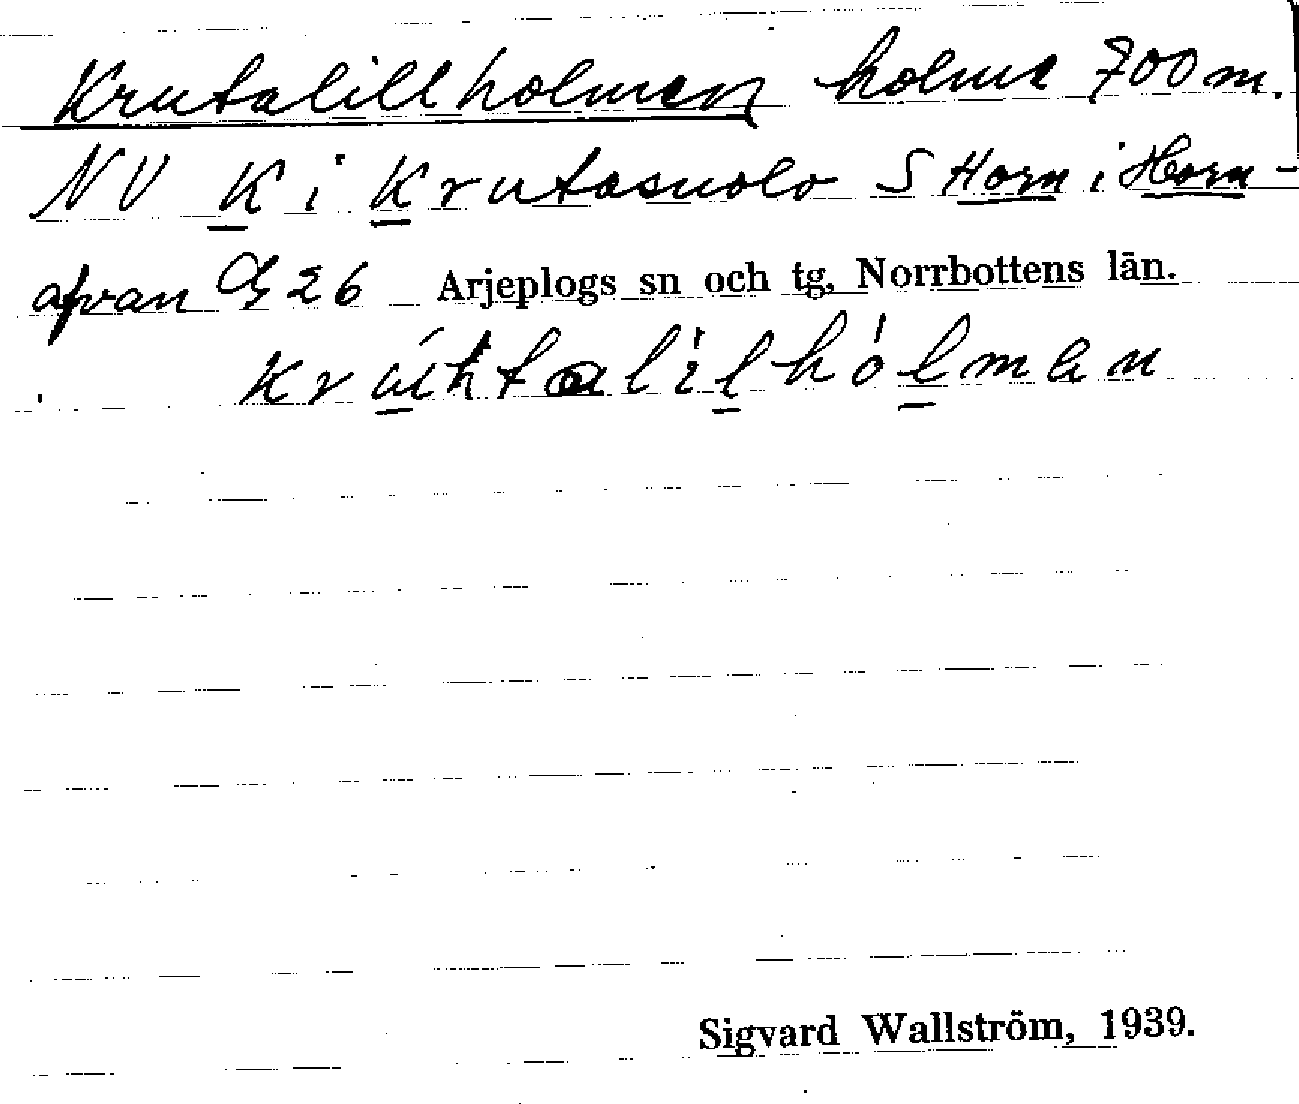 Krutalillholmen holme 700 m.
NV K i Krutasuolo S Horn i Horn-
afvan 26 Arjeplogs sn och tg, Norrbottens län.
Sigvard Wallström, 1939.